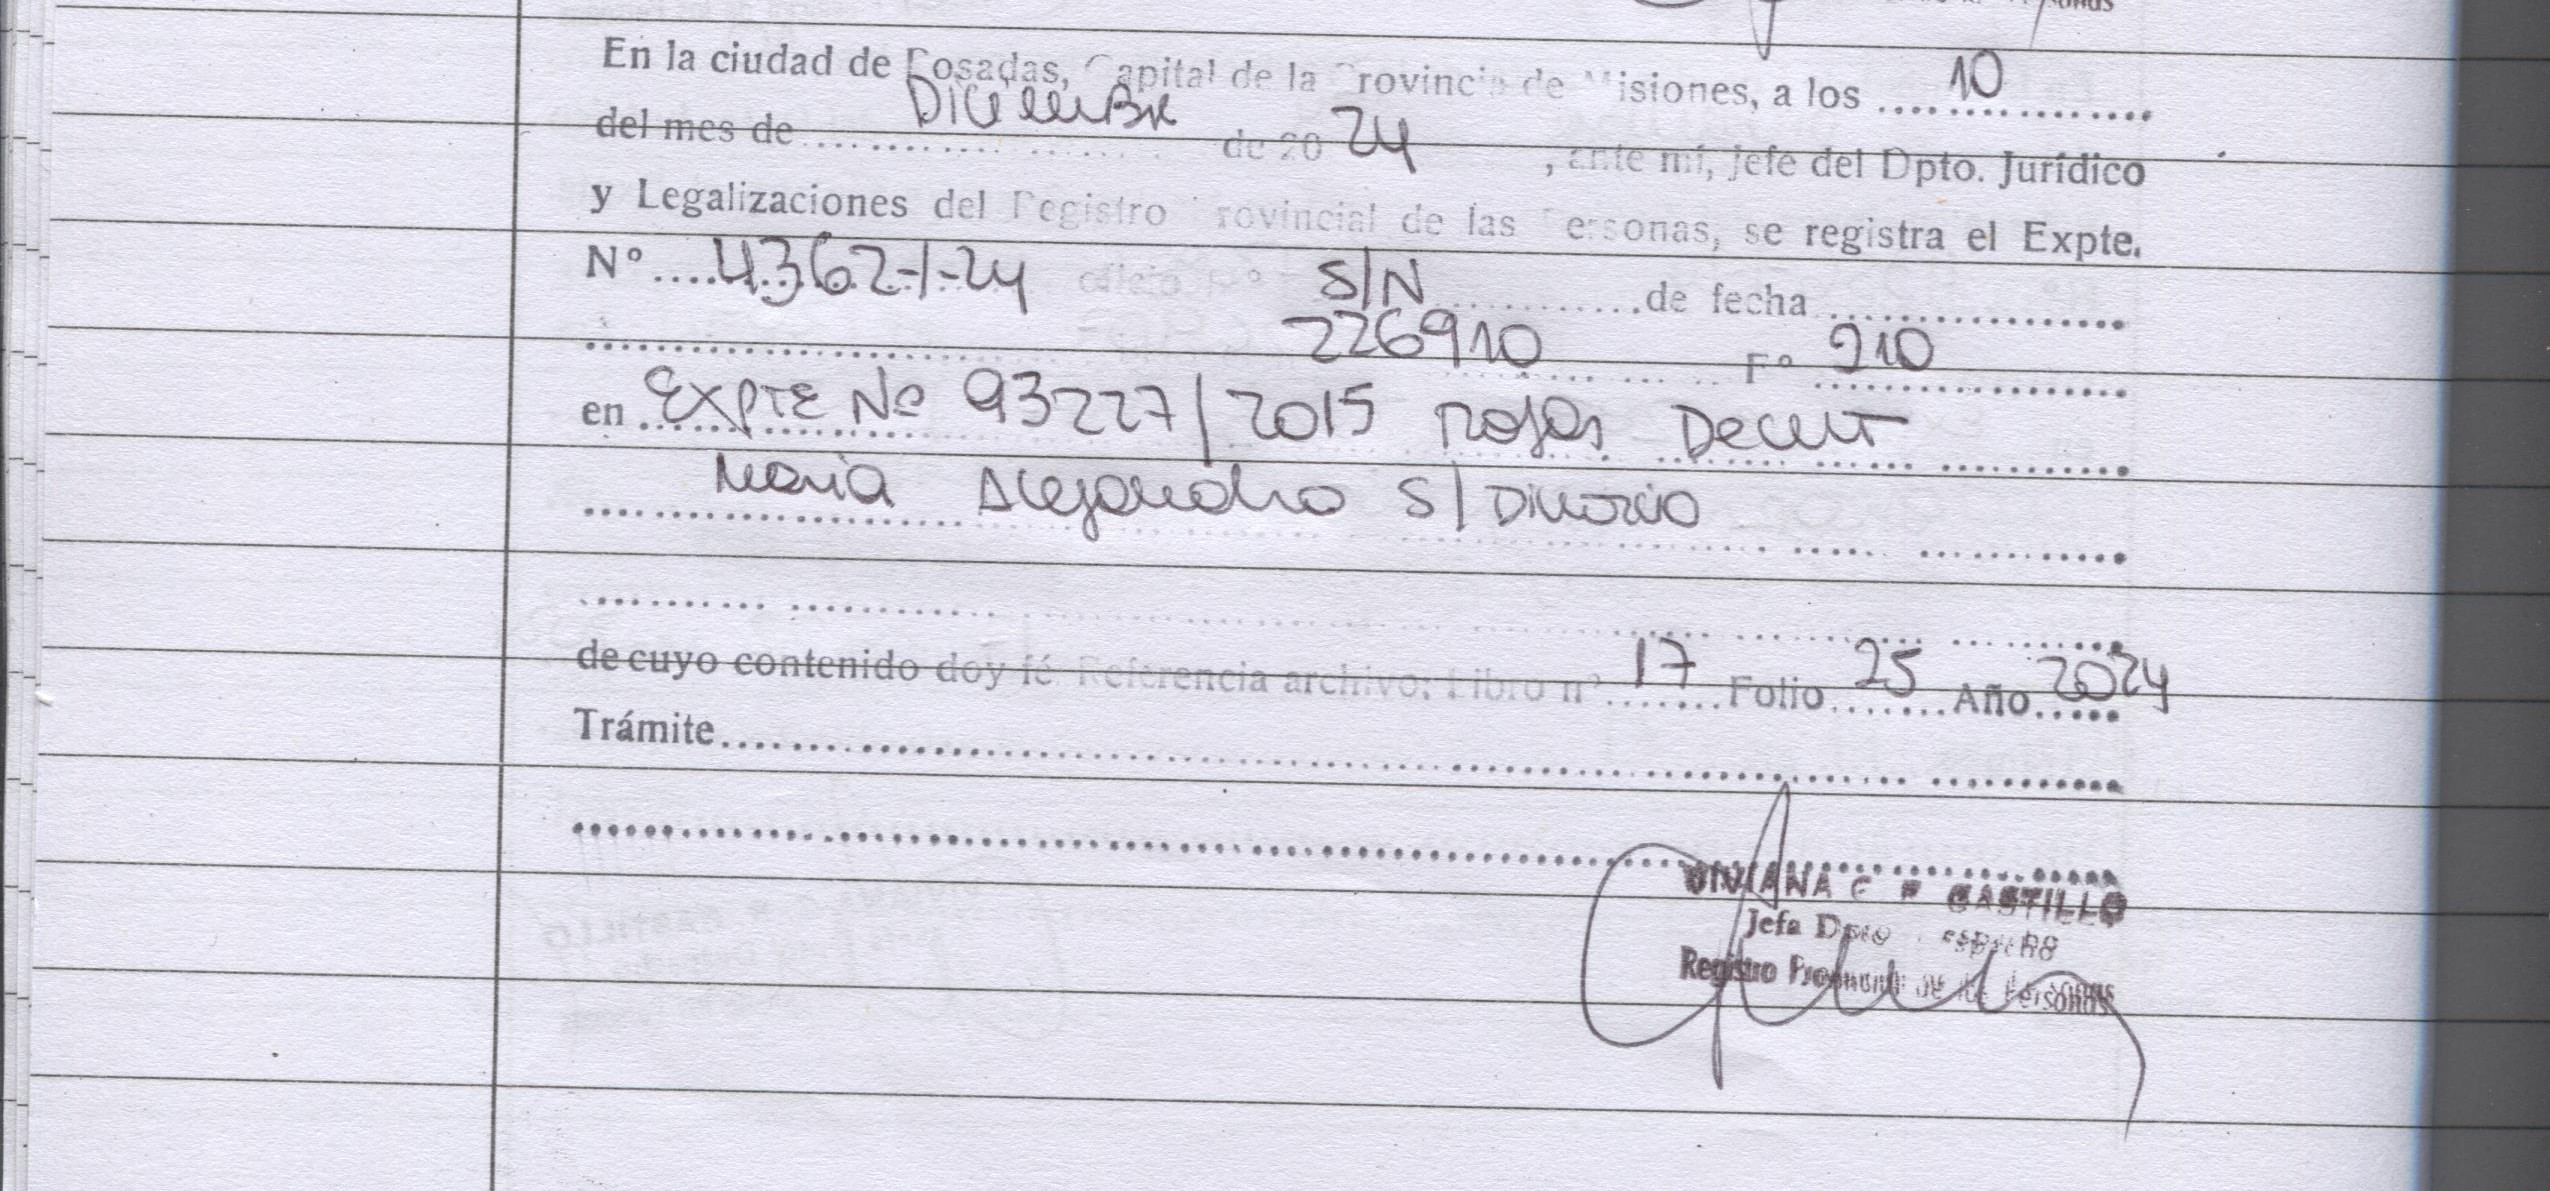 En la ciudad de Posadas, Capital de la Provincia de Misiones, a los .... 10
del mes de .......... DICIEMBRE de 20 24 , ante mí, jefe del Dpto. Jurídico
y Legalizaciones del Registro Provincial de las Personas, se registra el Expte.
Nº .... 4362-I-24 oficio Nº S/N ............ de fecha ..................
226910 Fº 910
en EXPTE Nº 93227/2015 Rojas
Maria Alejandra S/ Divorcio
de cuyo contenido doy fé Referencia archivo: Libro nº 17 Folio 25 Año 2024
Trámite
VIVIANA C CASTILLO
Jefa Dpto
Registro Provincial de las Personas